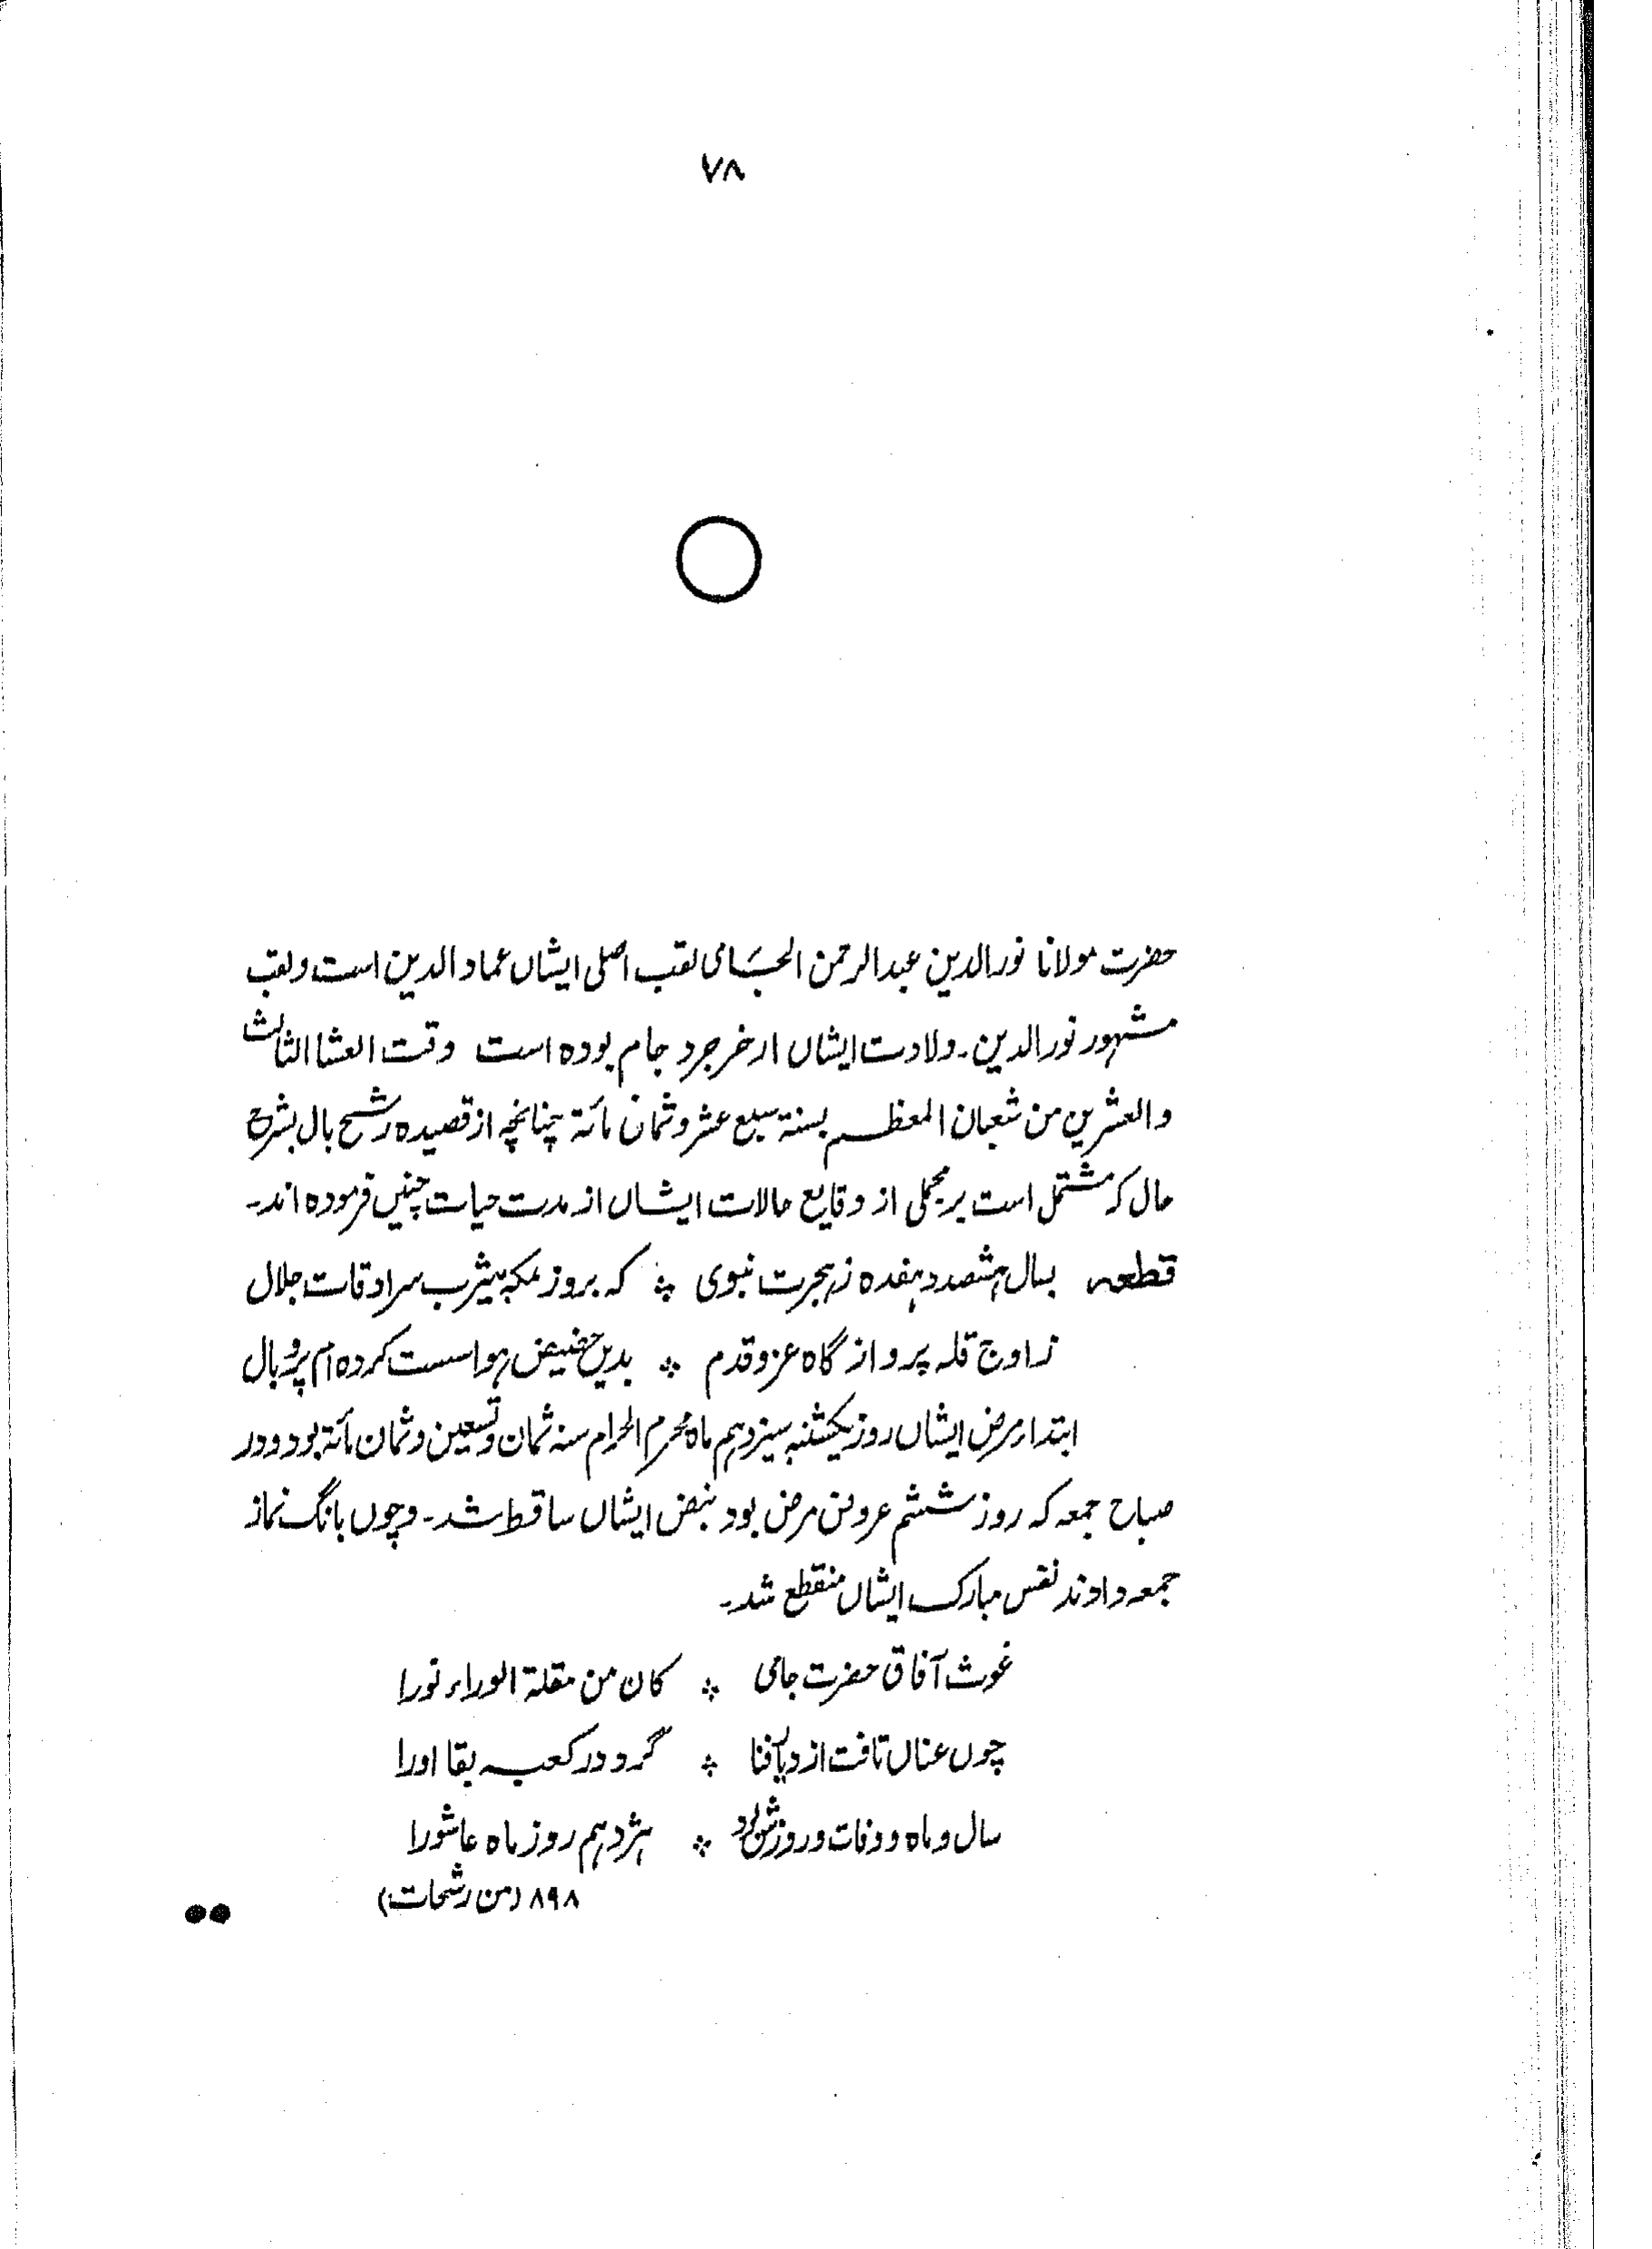 ۷۸
حضرت مولانا نورالدین عبدالرحمن الجامی لقب اصلی ایشاں عماد الدین است ولقب
مشہور نورالدین۔ ولادت ایشاں ارخرجرد جام بوده است وقت العشا الثالث
والعشرین من شعبان المعظم بسنة سبع عشر وثمان مائة چنانچہ از قصیده رشح بال بشرح
حال کہ مشتمل است بر مجملی از وقایع حالات ایشاں از مدت حیات چنیں فرموده اند۔
قطعہ بسال ہشتصد وہفده زہجرت نبوی ؞ کہ بروز مکہ بیثرب سرادقات جلال
زاوج قلہ پرواز گاه عزوقدم ؞ بدیں حضیض ہوا سست کرده ام پر وبال
ابتداء مرض ایشاں روز یکشنبہ سیزدہم ماه محرم الحرام سنہ ثمان وتسعین وثمان مائة بود ودر
صباح جمعہ کہ روز ششم عروض مرض بود نبض ایشاں ساقط شد۔ وچوں بانگ نماز
جمعہ دادند نفس مبارک ایشاں منقطع شد۔
غوث آفاق حضرت جامی ؞ کان من مقلة الوراء نورا
چوں عناں تافت از دیار فنا ؞ گرد در کعبہ بقا اورا
سال وماه ووفات وروزش بود ؞ ہژدہم روز ماه عاشورا
۸۹۸ (من رشحات)